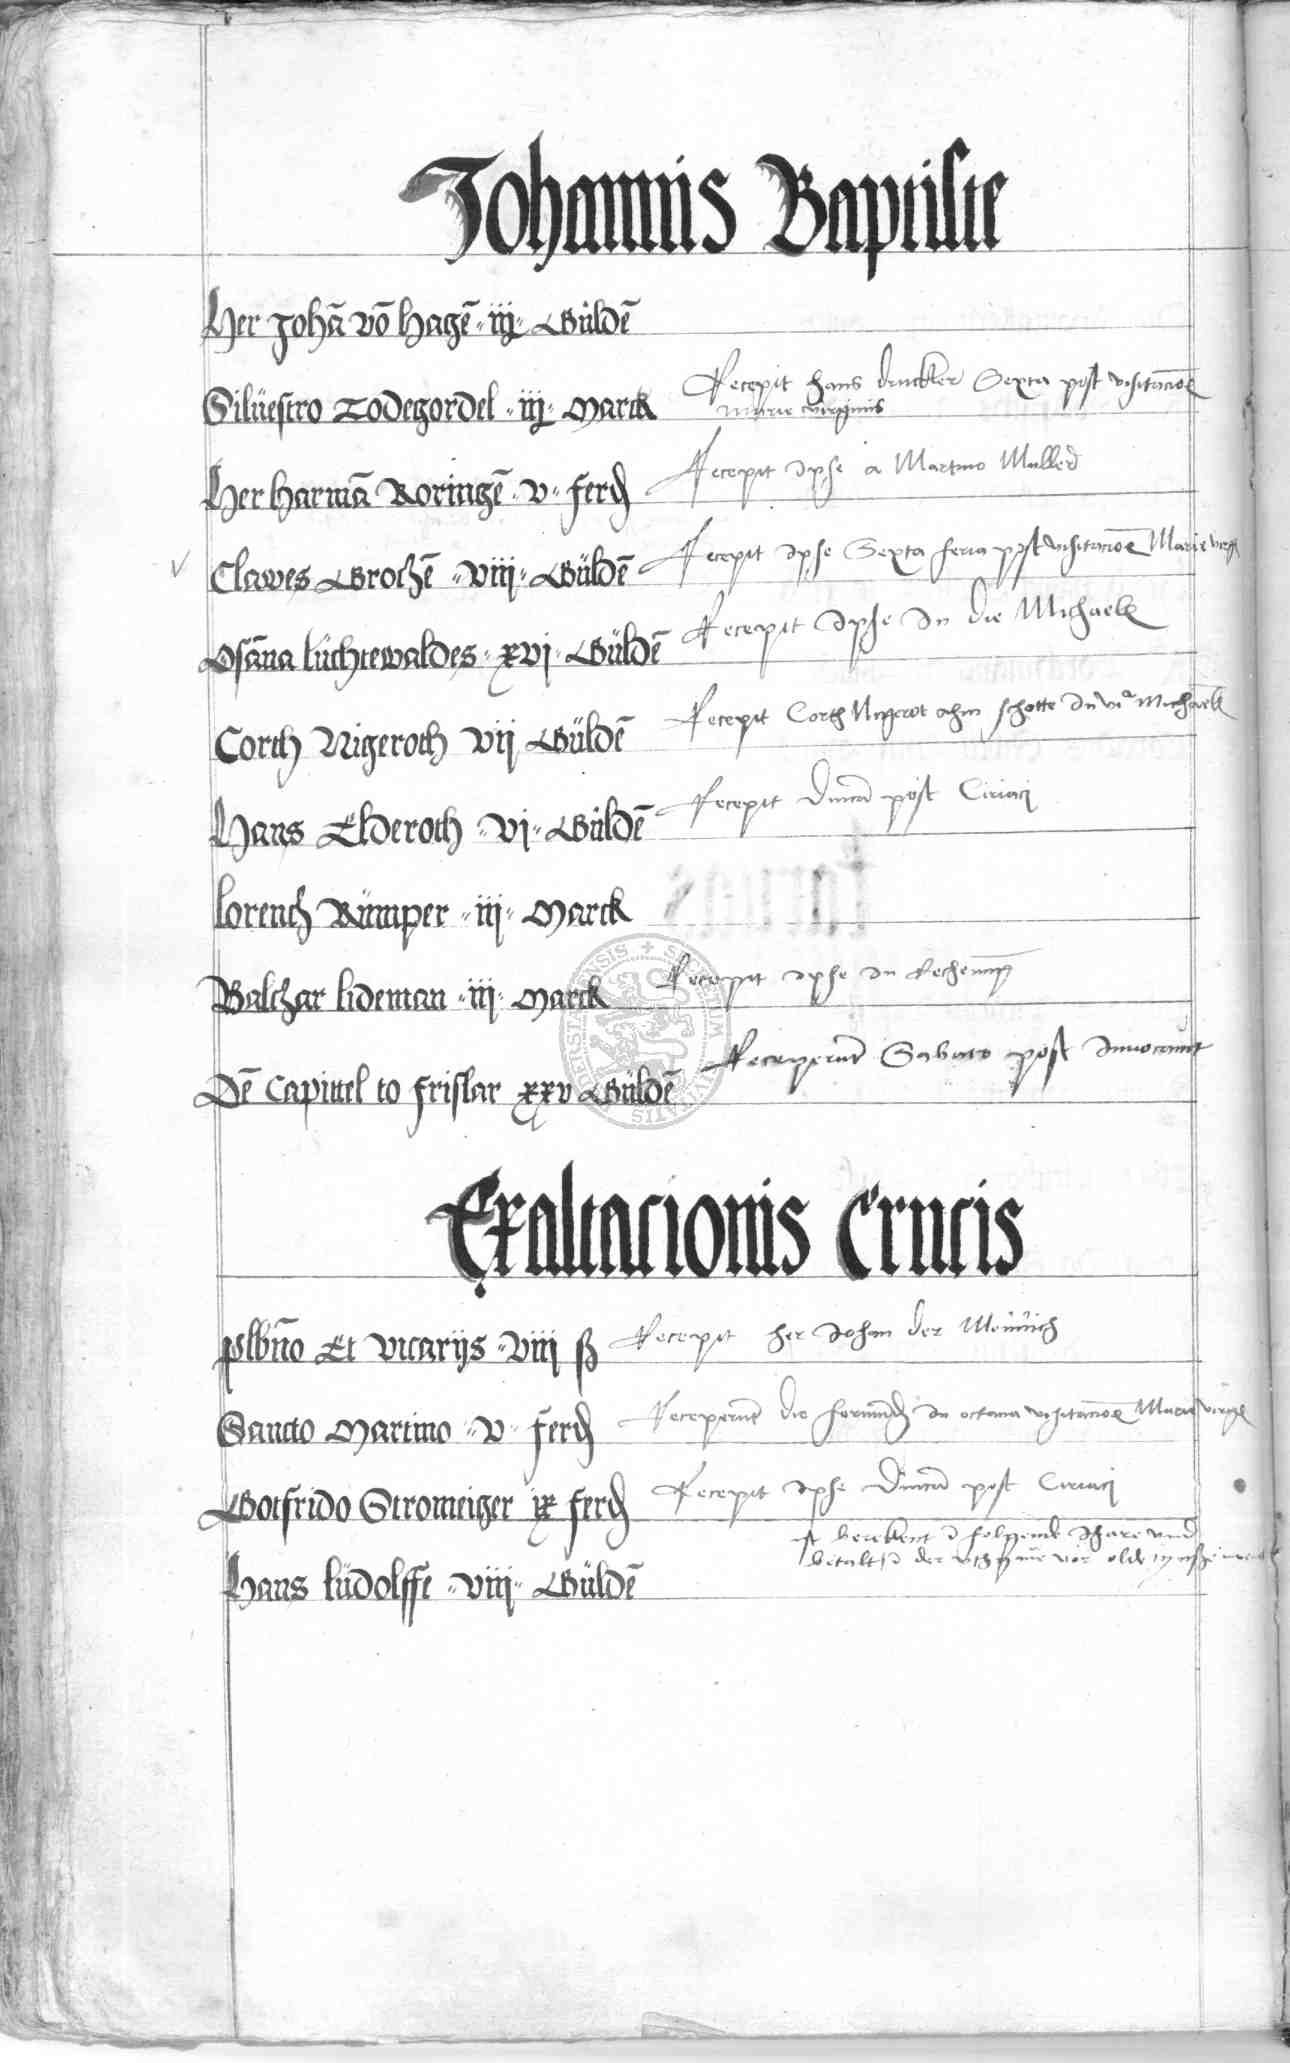 Johannis Baptiste
Her Johā vō Hagē ·iij· Güldē
Silüestro Zodegordel ·iij· Marck
Recepit hans druckler Sexta post visitacioē
Marie virginis
Her Harmā Roringē ·v· ferd
Recepit Ipse a Martino Muller
Clawes Grothē ·viij· Güldē
Recepit Ipse Sexta feria post visitacioē Marie virg
Osāna lüchtewaldes ·xvj· Güldē
Recepit Ipse In die Michael
Corth Nigeroth vij Güldē
Recepit Corth Nigerot schotte In Michael
Hans Elderoth ·vj· Güldē
Recepit post Ciriaci
lorentz Rümper ·iij· Marck
Baltzar lideman ·iij· Marck
Recepit Ipse In
Dē Capittel to frislar xxv Güldē
Receperūt Sabato post
Exaltacionis Crucis
plbno Et vicarijs ·viij ß
Recepit her Johan der
Sancto Martino ·v· ferd
Receperūt die In octava visitacioē Marie virg
Gotfrido Stromeiger ix ferd
Recepit Ipse post Ciriaci
Ist berekent folgende Jhare vnd
betalt der vor olde
Hans lüdolffe ·viij· Güldē